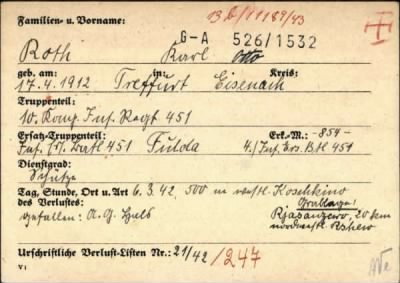 13b/11189/43
Familien- u. Vorname:
G-A 526/1532
Roth Karl Otto
geb. am: in: Kreis:
17.4.1912 Treffurt Eisenach
Truppenteil:
10. Komp. Inf. Regt 451
Ersatz-Truppenteil: Erk.-M.: -854-
Inf. Ers. Batl 451 Fulda 4./Inf. Ers. Btl 451
Dienstgrad:
Schütze
Tag, Stunde, Ort u. Art 6.3.42, 500 m westl. Koschkino
des Verlustes: Grablage:
gefallen: A.G. Hals Rjasanzewo, 20 km
nordwestl. Rshew
Urschriftliche Verlust-Listen Nr.: 21/42 /247
V 1